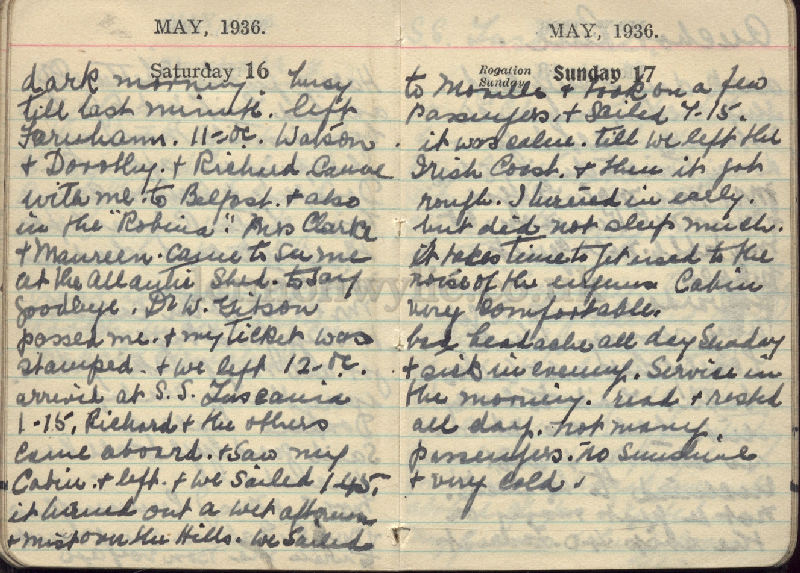 MAY, 1936.
Saturday 16
dark morning busy
till last minute. left
Farnham. 11-oc. Watson
+ Dorothy. + Richard. Came
with me to Belfast. + also
in the "Robina". Mrs Clarke
+ Maureen. came to see me
at the Atlantic Shed. to say
goodbye. Dr W. Gibson
passed me. + my ticket was
stamped. + we left 12-oc.
arrived at S.S. Tuscania
1-15. Richard + the others
came aboard. + saw my
Cabin. + left. + we sailed 1-45.
it turned out a wet afternoon
+ mist over the Hills. we sailed
MAY, 1936.
Rogation
Sunday
Sunday 17
to Moville + took on a few
passengers. + Sailed 7-15.
it was calm. till we left the
Irish Coast. + then it got
rough. I turned in early.
but did not sleep much.
it takes time to get used to the
noise of the engines Cabin
very comfortable.
bad headache all day Sunday
+ sick in evening. Service in
the morning. read + rested
all day. not many
passengers. no sunshine
+ very cold.